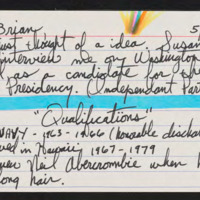 Brian 5
just thought of a idea. Susan
interview me on Washington
as a candidate for the
Presidency. Independent Par
"Qualifications"
NAVY - 1963-1966 (honorable discha
ved in Hawaii 1967-1979
Neil Abercrombie when h
ong hair.